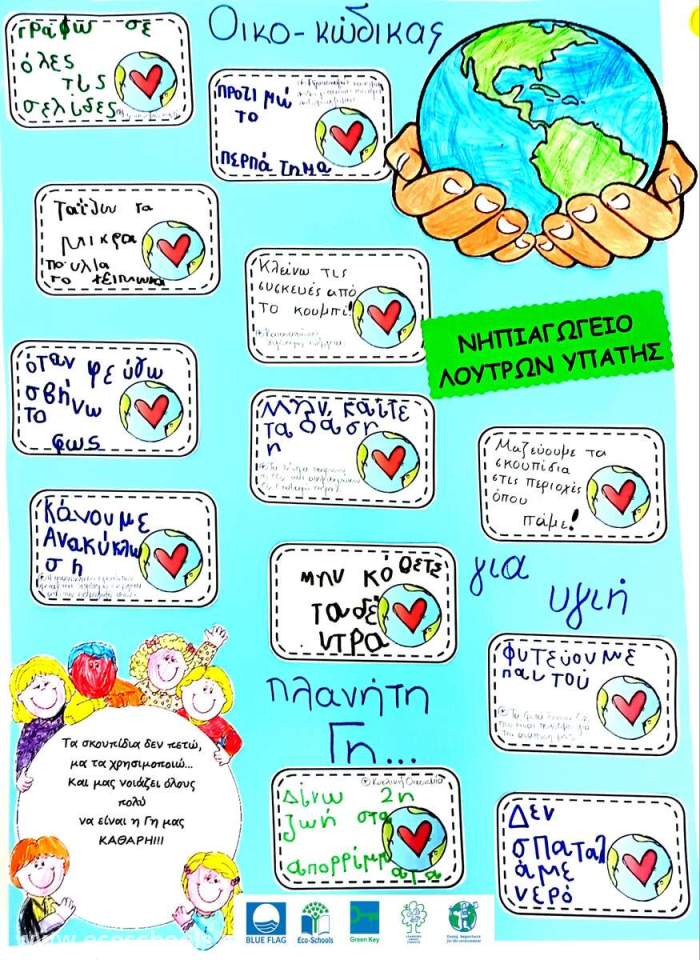 Οικο-κώδικας
γραφω σε
όλες
τις
σελίδες
προτιμώ
το
περπάτημα
Ταΐζω τα
μικρα
πουλια
το χειμωνα
Κλείνω τις
συσκευές από
το κουμπί!
ΝΗΠΙΑΓΩΓΕΙΟ
ΛΟΥΤΡΩΝ ΥΠΑΤΗΣ
όταν φεύγω
σβήνω
το
φως
Μην καίτε
τα δάση
η
Μαζεύουμε τα
σκουπίδια
στις περιοχές
όπου
πάμε!
Κάνουμε
Ανακύκλω
ση
μην κόβετε
τα δέ
ντρα
για
υγιή
πλανήτη
Γη...
φυτεύουμε
παντού
Τα σκουπίδια δεν πετώ,
μα τα χρησιμοποιώ...
Και μας νοιάζει όλους
πολύ
να είναι η Γη μας
ΚΑΘΑΡΗ!!!
Κυκλική Οικονομία
Δίνω 2η
ζωή στα
απορρίμματα
Δεν
σπαταλ
άμε
νερό
BLUE FLAG
Eco-Schools
Green Key